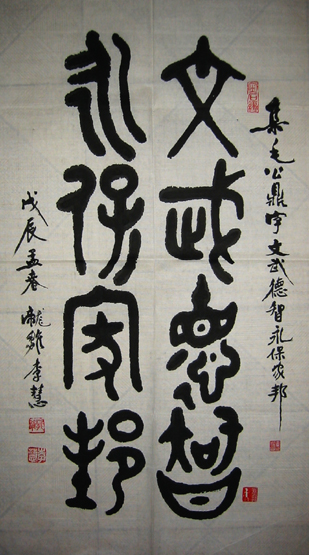 集毛公鼎字文武德智永保家邦
文武德智
永保家邦
戊辰孟春
李慧